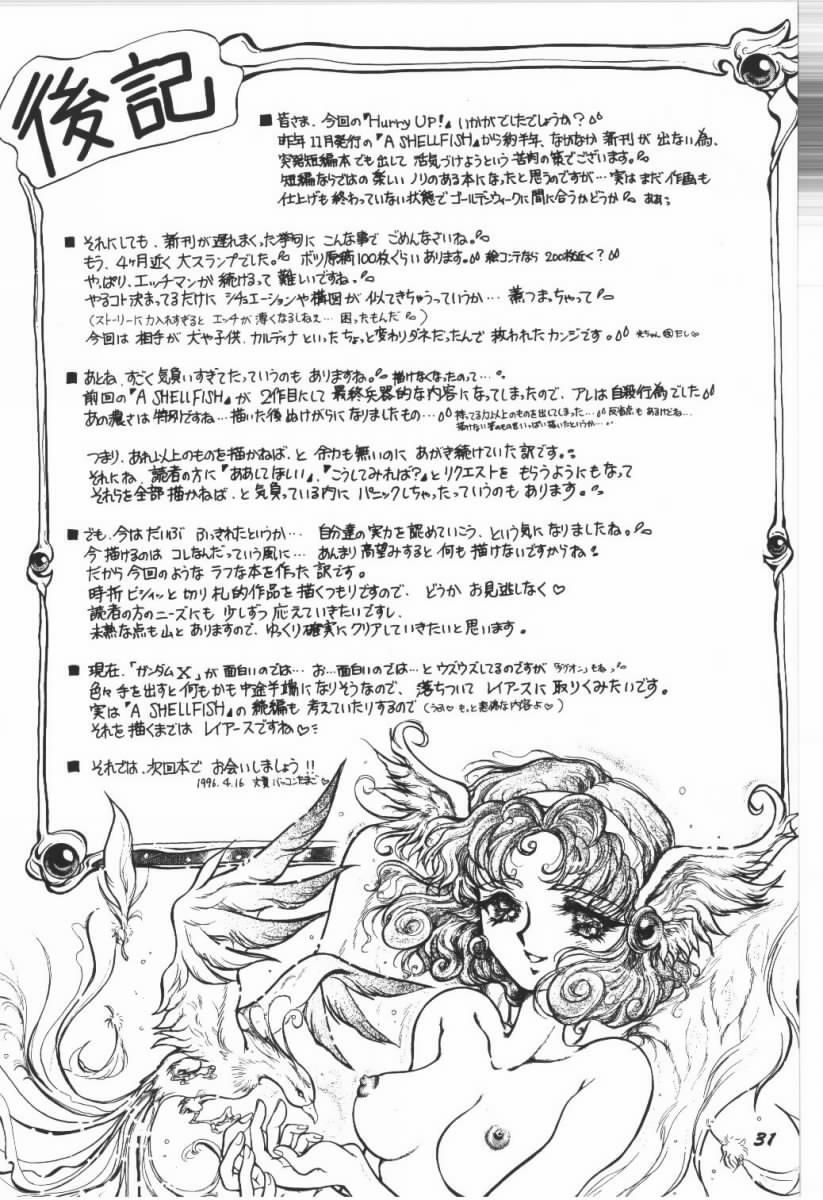 後記
■ 皆さま、今回の『Hurry UP!』いかがでしたでしょうか?
昨年11月発行の『A SHELLFISH』から約半年、なかなか新刊が出ない為、
突発短編本でも出して活気づけようという苦肉の策でございます。
短編ならではの楽しいノリのある本になったと思うのですが…実はまだ作画も
仕上げも終わっていない状態でゴールデンウィークに間に合うかどうか ああ
■ それにしても、新刊が遅れまくった挙句にこんな事でごめんなさいね。
もう、4ヶ月近く大スランプでした。ボツ原稿100枚ぐらいあります。絵コンテなら200枚近く?
やっぱり、エッチマンガ続けるって難しいですね。
やるコト決まってるだけにシチュエーションや構図が似てきちゃうっていうか…煮つまっちゃって
(ストーリーに力入れすぎるとエッチが薄くなるしねぇ…困ったもんだ)
今回は相手が犬や子供、カルディナといったちょっと変わりダネだったんで救われたカンジです。
■ あとね、すごく気負いすぎてたっていうのもありますね。描けなくなったのって…
前回の『A SHELLFISH』が2作目にして最終兵器的な内容になってしまったので、アレは自殺行為でした
あの濃さは特別ですね…描いた後ぬけがらになりましたもの…持ってる力以上のものを出してしまった…反省点もあるけどね…
描けない筈のものもいっぱい描いたというか…
つまり、あれ以上のものを描かねば、と余力も無いのにあがき続けていた訳です。
それにね、読者の方に『ああしてほしい』、『こうしてみれば?』とリクエストをもらうようにもなって
それらを全部描かねば、と気負っている内にパニックしちゃったっていうのもあります。
■ でも、今はだいぶふっきれたというか… 自分達の実力を認めていこう、という気になりましたね。
今描けるのはコレなんだっていう風に… あんまり高望みすると何も描けないですからね
だから今回のようなラフな本を作った訳です。
時折ビシィッと切り札的作品を描くつもりですので、どうかお見逃しなく♡
読者の方のニーズにも少しずつ応えていきたいですし、
未熟な点も山とありますので、ゆっくり確実にクリアしていきたいと思います。
■ 現在、「ガンダムX」が面白いのでは…お…面白いのでは…とウズウズしてるのですが
色々手を出すと何もかも中途半端になりそうなので、落ちついてレイアースに取りくみたいです。
実は『A SHELLFISH』の続編も考えていたりするので(うふ♡もっと悪趣な内容よ♡)
それを描くまではレイアースですね♡
■ それでは、次回本でお会いしましょう!!
1996.4.16
31